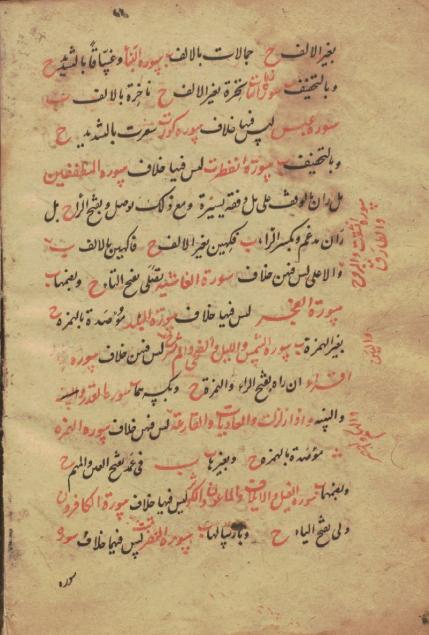 بغير الالف ح جمالات بالالف ب سورة النبأ وغساقا بالتشديد ح
وبالتخفيف ب سورة النازعات نخرة بغير الالف ح ناخرة بالالف ب
سورة عبس ليس فيها خلاف سورة كورت سعرت بالتشديد ح
وبالتخفيف ب سورة انفطرت ليس فيها خلاف سورة المطففين
بل ران الوقف على بل وقفة يسيرة ومع ذلك بوصل وبفتح الراء ح بل
ران مدغم وبكسر الراء ب فكهين بغير الالف ح فاكهين بالالف ب
والاعلى ليس فيهن خلاف سورة الغاشية تصلى بفتح التاء ح وبضمها ب
سورة الفجر ليس فيها خلاف سورة البلد مؤصدة بالهمزة ح
بغير الهمزة ب سورة الشمس والليل والضحى والم نشرح ليس فيهن خلاف سورة
اقراء ان راه بفتح الراء والهمزة ح وبكسرهما ب سورة القدر
والبينه واذا زلزلت والعاديات والقارعة ليس فيهن خلاف سورة الهمزة
مؤصدة بالهمزه ح وبغيرها ب فى عمد بفتح العين والميم ح
وبضمها ب سورة الفيل والايلاف والماعون والكوثر ليس فيها خلاف سورة الكافرون
ولى بفتح الياء ح وبارسالها ب سورة النصر ليس فيها خلاف سورة
سوره
سورة انشقت والبروج
والطارق
والتين